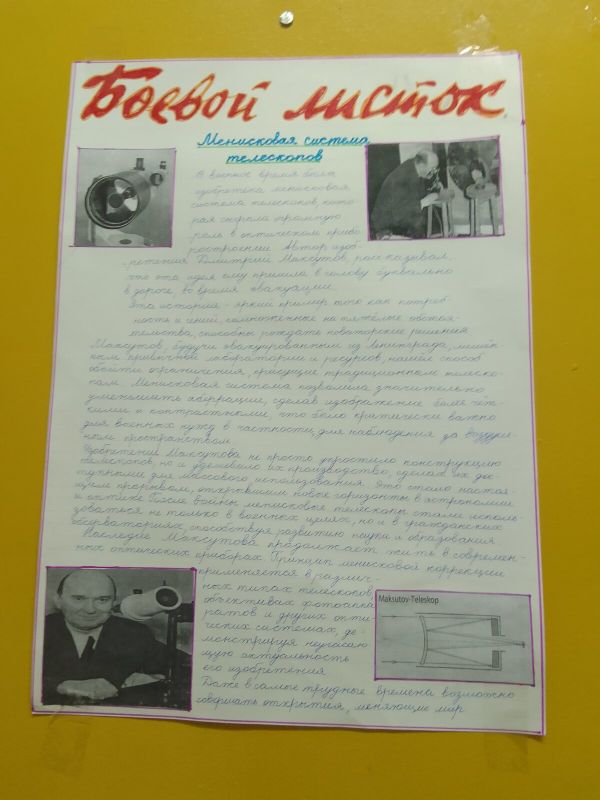 Боевой листок
Менисковая система
телескопов
В военное время была
изобретена менисковая
система телескопов, кото-
рая сыграла огромную
роль в оптическом прибо-
ростроение Автор изоб-
ретения Дмитрий Максутов, рассказывал,
что эта идея ему пришла в голову буквально
в дороге, во время эвакуации.
Эта история - яркий пример того как потреб-
ность и гений, помноженные на тяжёлые обстоя-
тельства, способны рождать новаторские решения
Максутов, будучи эвакуированным из Ленинграда, лишён-
ным привычной лаборатории и ресурсов, нашёл способ
обойти ограничения, присущие традиционным телеско-
пам Менисковая система позволила значительно
уменьшить аберрации, сделав изображение более чёт-
кими и контрастными, что было критически важно
для военных нужд в частности, для наблюдения за воздуш-
ным пространством.
Изобретение Максутова не просто упростило конструкцию
телескопов, но и удешевило их производство, сделав их дос-
тупными для массового использования. Это стало настоя-
щим прорывом, открывшим новые горизонты в астрономии
и оптике После войны менисковые телескопы стали исполь-
зоваться не только в военных целях, но и в гражданских
обсерваториях, способствуя развитию науки и образования
Наследие Максутова продолжает жить в современ-
ных оптических приборах Принцип менисковой коррекции
применяется в различ-
ных типах телескопов,
объективах фотоаппа
ратов и других опти-
ческих системах, де-
монстрируя неугасаю
щую актуальность
его изобретения
Даже в самые трудные времена возможно
совершать открытия, меняющие мир
Maksutov-Teleskop